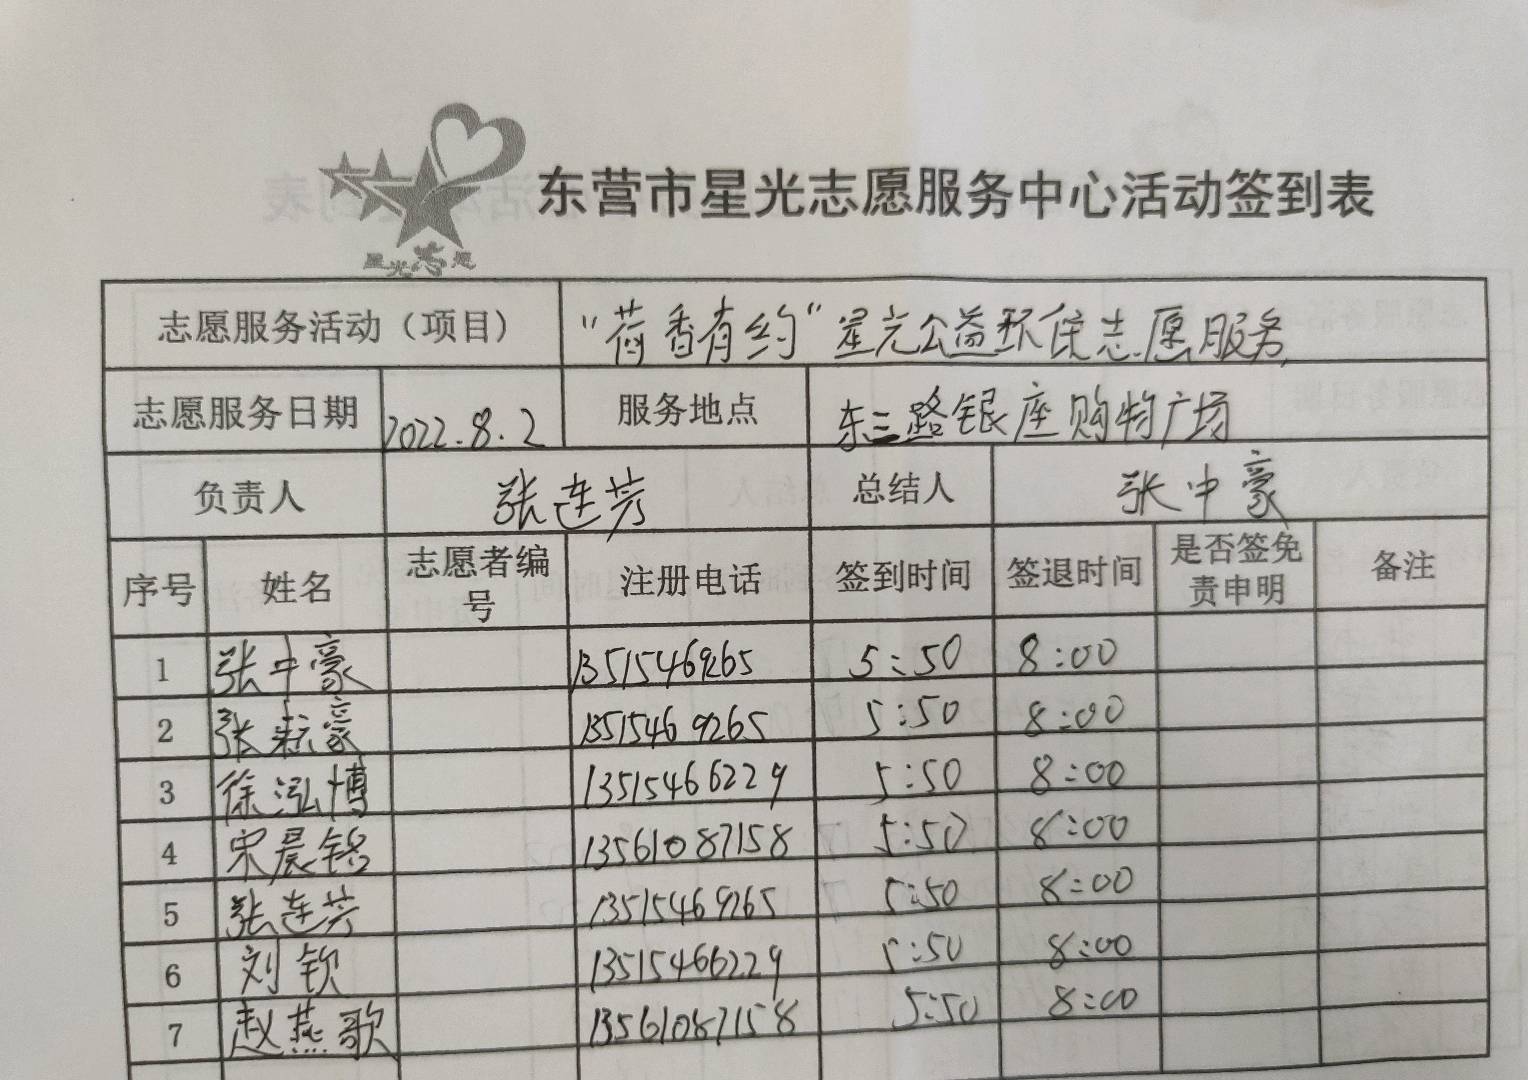 星光志愿
东营市星光志愿服务中心活动签到表
志愿服务活动（项目） “荷香有约”星光公益环保志愿服务
志愿服务日期 2022.8.2 服务地点 东三路银座购物广场
负责人 张连芳 总结人 张中豪
序号 姓名 志愿者编号 注册电话 签到时间 签退时间 是否签免责申明 备注
1 张中豪 13515469265 5:50 8:00
2 张耘豪 13515469265 5:50 8:00
3 徐泓博 13515466229 5:50 8:00
4 宋晨铭 13561087158 5:50 8:00
5 张连芳 13515469265 5:50 8:00
6 刘钦 13515466229 5:50 8:00
7 赵燕歌 13561087158 5:50 8:00